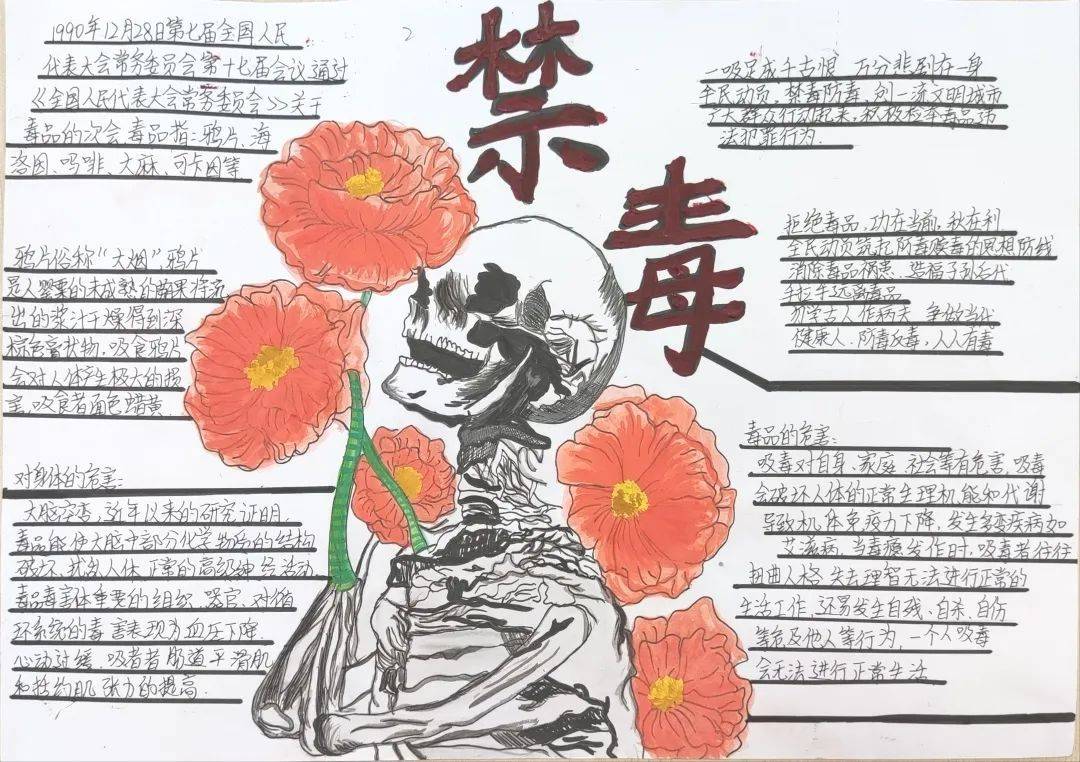 禁毒
1990年12月28日第七届全国人民
代表大会常务委员会第十七届会议通过
《全国人民代表大会常务委员会》关于
毒品的次会毒品指：鸦片、海
洛因、吗啡、大麻、可卡因等
鸦片俗称“大烟”，鸦片
是人罂粟的未成熟的蒴果将流
出的浆汁干燥得到深
棕色膏状物，吸食鸦片
会对人体产生极大的损
害，吸食者面色蜡黄
对身体的危害：
大脑空壳，近年以来的研究证明，
毒品能使大脑中部分化学物质的结构
破坏，扰乱人体正常的高级神经活动
毒品毒害体重要的组织 器官，对循
环系统的毒害表现为血压下降，
心动过缓，吸者者肠道平滑肌
和括约肌张力的提高.
一吸足成千古恨 万分悲剧在一身
全民动员、禁毒防毒、创一流文明城市
广大群众行动起来，积极检举毒品违
法犯罪行为.
拒绝毒品，功在当前，秋在利
全民动员筑起防毒贩毒的思想防线
消除毒品祸患、造福子孙后代
手拉牛远离毒品
勿学古人作病夫 争做当代
健康人、防毒反毒，人人有毒
毒品的危害：
吸毒对自身、家庭、社会等有危害，吸毒
会破坏人体的正常生理机能和代谢
导致机体免疫力下降，发生多变疾病如
艾滋病，当毒瘾发作时，吸毒者往往
扭曲人格 失去理智无法进行正常的
生活工作，还易发生自残、自杀、自伤
等危及他人等行为，一个人吸毒
会无法进行正常生活